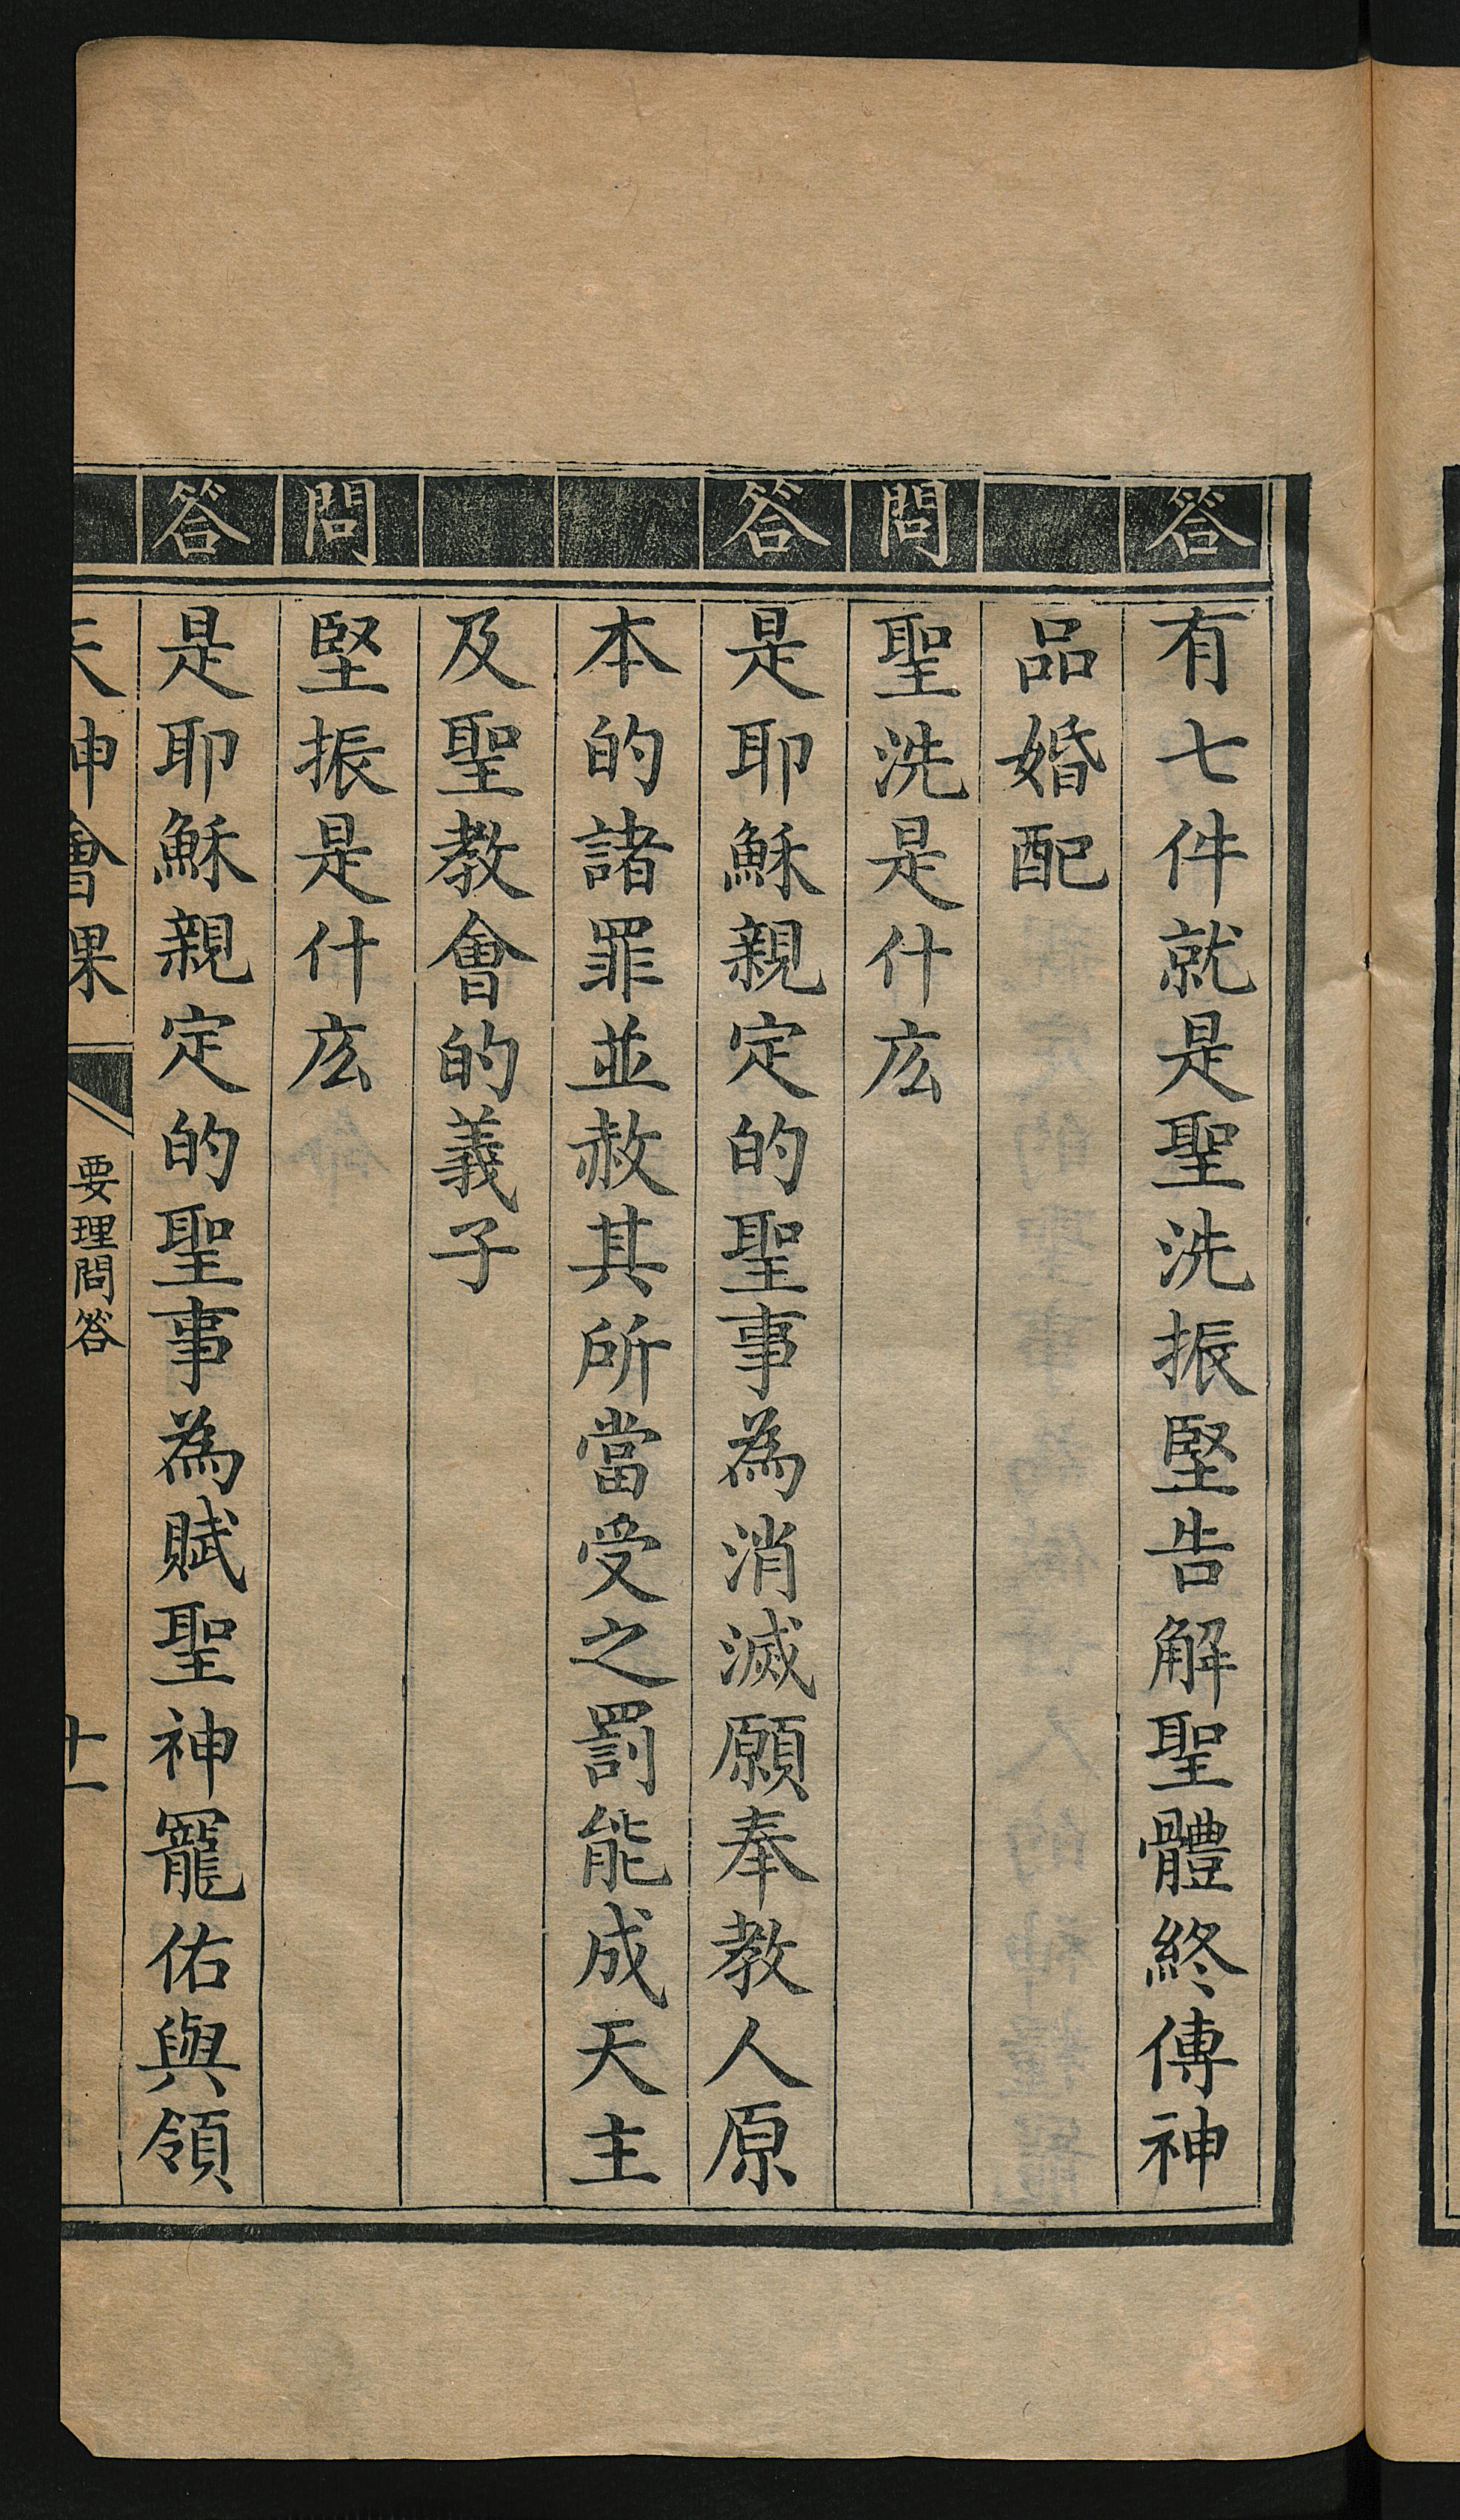 答 有七件就是聖洗振堅告解聖體終傳神
品婚配
問 聖洗是什庅
答 是耶穌親定的聖事為消滅願奉教人原
本的諸罪並赦其所當受之罰能成天主
及聖教會的義子
問 堅振是什庅
答 是耶穌親定的聖事為賦聖神寵佑與領
天神會果 要理問答 十一